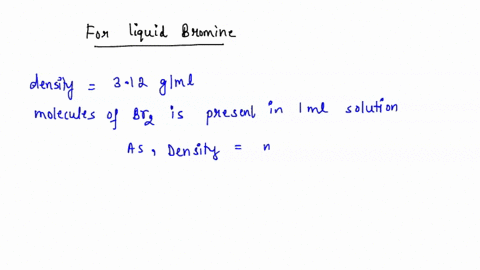 For liquid Bromine
density = 3.12 g/ml
molecules of Br2 is present in 1ml solution
As, Density = n